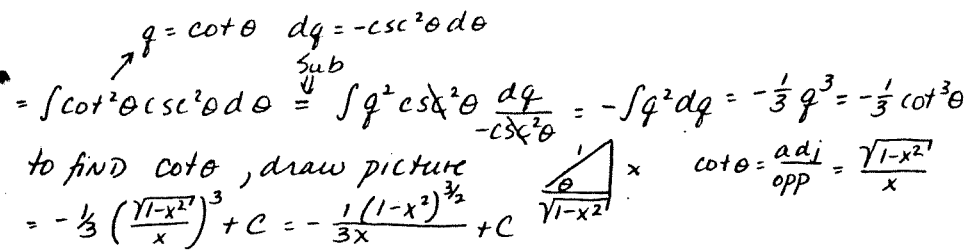 q = cot θ   dq = -csc²θ dθ
Sub
= ∫cot²θ csc²θ dθ = ∫q² csc²θ dq/(-csc²θ) = -∫q² dq = -1/3 q³ = -1/3 cot³θ
to find cotθ, draw picture   1   θ   x   √(1-x²)   cotθ = adj/opp = √(1-x²)/x
= -1/3 (√(1-x²)/x)³ + C = - 1(1-x²)^(3/2)/3x + C